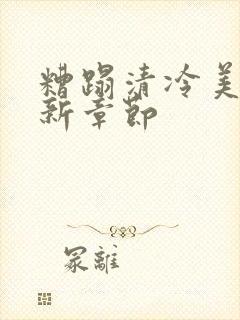 糟蹋清冷美
新章節
冢離